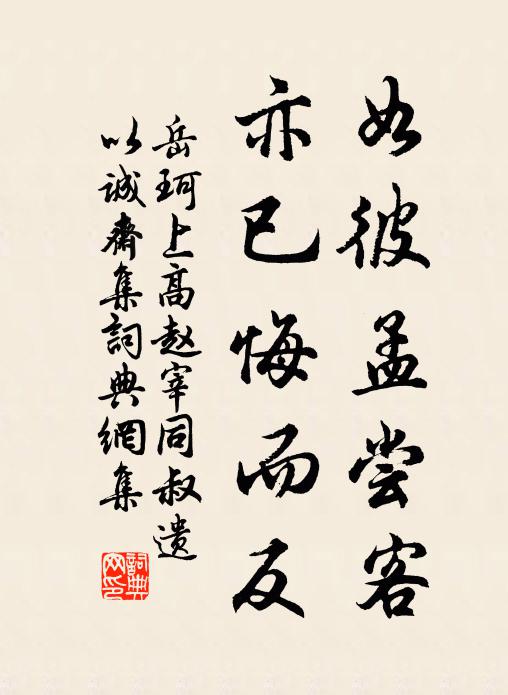 如彼孟尝客
亦已悔而反
岳珂上高赵宰同叔遗
以诚斋集詞典網集
詞典
网印